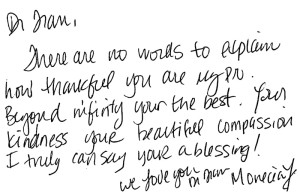 Dr Tran,
There are no words to explain
how thankful you are my DR.
Beyond infinity your the best. Your
kindness your beautiful compassion
I truly can say your a blessing!
we love you Dr Tran